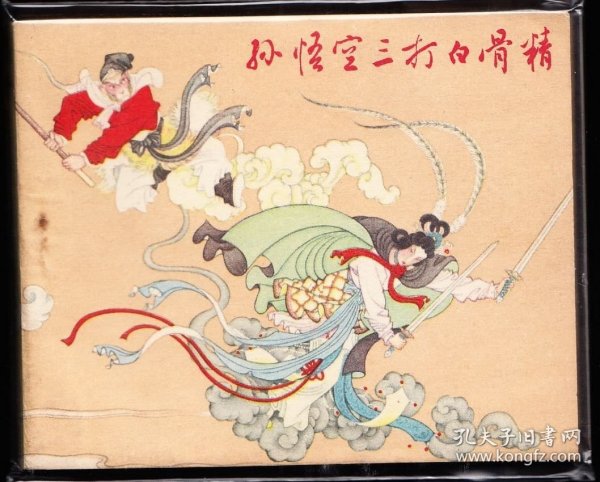 孙悟空三打白骨精
孔夫子旧書网
www.kongfz.com